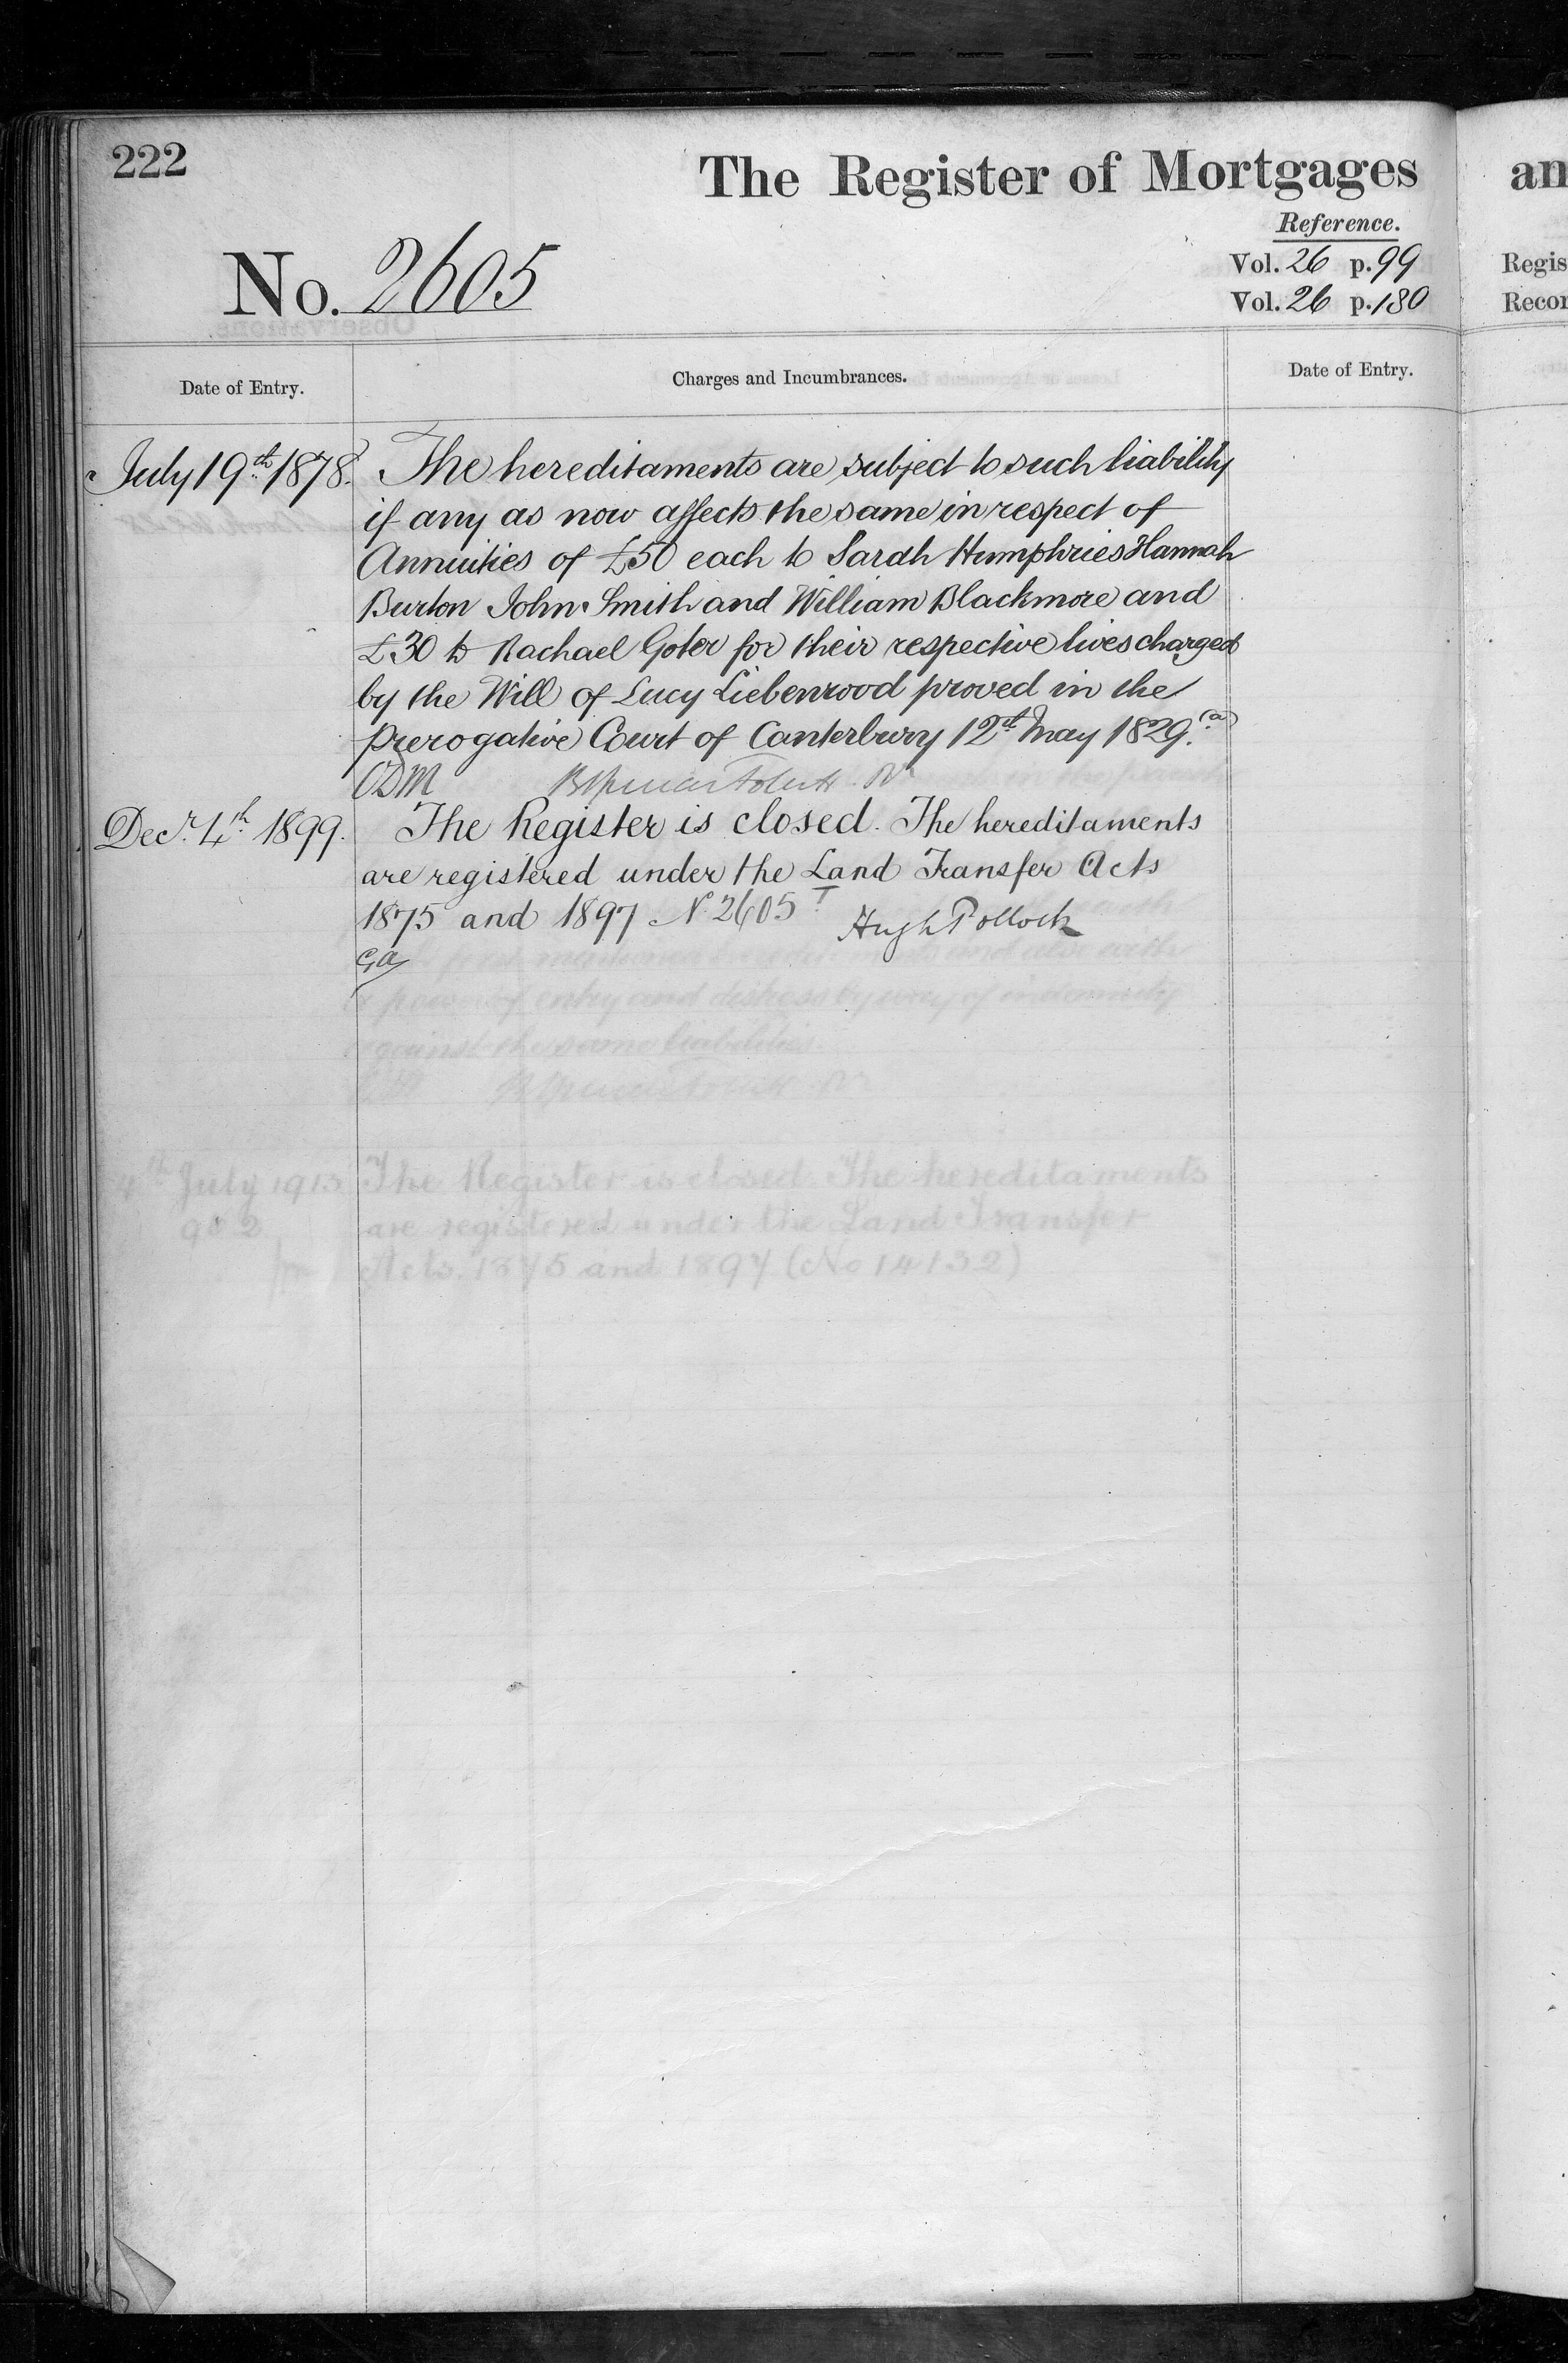 222
The Register of Mortgages
an
Reference.
Vol. 26 p. 99
Vol. 26 p. 180
Regis
Recor
No. 2605
Date of Entry.
Charges and Incumbrances.
Date of Entry.
July 19th 1878. The hereditaments are subject to such liability
if any as now affects the same in respect of
Annuities of £50 each to Sarah Humphries Hannah
Burton John Smith and William Blackmore and
£30 to Rachael Goter for their respective lives charged
by the Will of Lucy Liebenrood proved in the
Prerogative Court of Canterbury 12th May 1829. (a)
CDM
Decr. 4th 1899. The Register is closed. The hereditaments
are registered under the Land Transfer Acts
1875 and 1897 No. 2605T Hugh Pollock
power of entry and distress by way of indemnity
against the same liabilities.
4th July 1913 The Register is closed. The hereditaments
are registered under the Land Transfer
Acts. 1875 and 1897 (No 14132)